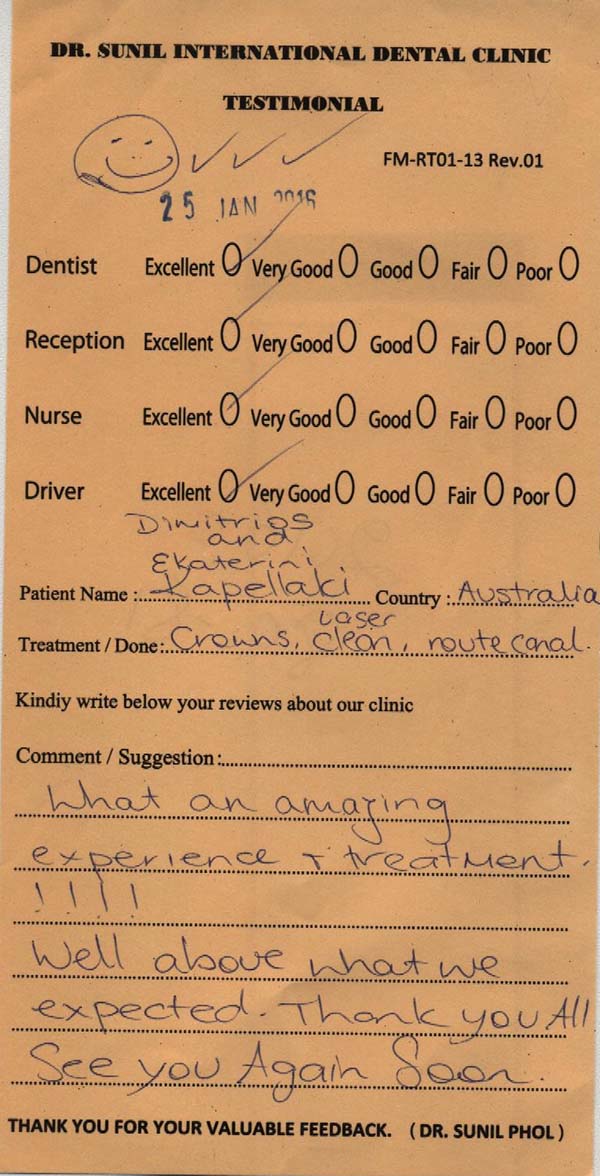 DR. SUNIL INTERNATIONAL DENTAL CLINIC
TESTIMONIAL
FM-RT01-13 Rev.01
25 JAN 2016
Dentist Excellent Very Good Good Fair Poor
Reception Excellent Very Good Good Fair Poor
Nurse Excellent Very Good Good Fair Poor
Driver Excellent Very Good Good Fair Poor
Dimitrios
and
Ekaterini
Patient Name : Kapellaki Country : Australia
Laser
Treatment / Done : Crowns, clean, route canal.
Kindiy write below your reviews about our clinic
Comment / Suggestion :
What an amazing
experience + treatment.
!!!!
Well above what we
expected. Thank you All
See you Again Soon.
THANK YOU FOR YOUR VALUABLE FEEDBACK. ( DR. SUNIL PHOL )